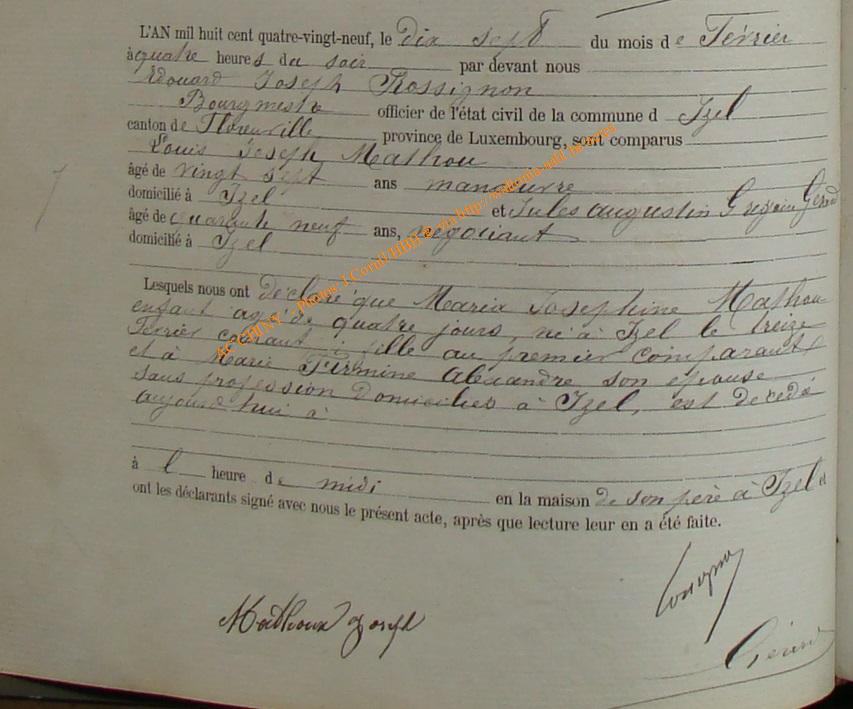 L'AN mil huit cent quatre-vingt-neuf, le dix sept du mois de Février
à quatre heures du soir par devant nous
Edouard Joseph Rossignon
Bourgmestre officier de l'état civil de la commune d Izel
canton de Florenville province de Luxembourg, sont comparus
Louis Joseph Mathou
âgé de vingt sept ans manœuvre
domicilié à Izel et Jules Augustin Grégoire Gérard
âgé de quarante neuf ans, négociant
domicilié à Izel
Lesquels nous ont déclaré que Maria Josephine Mathou
enfant agé de quatre jours, né à Izel le treize
Février courant, fille au premier comparant
et à Marie Firmine Alexandre son épouse
sans profession domiciliés à Izel, est décédé
aujourd'hui à
à l heure de midi en la maison de son père à Izel et
ont les déclarants signé avec nous le présent acte, après que lecture leur en a été faite.
Mathoux Joseph
Gérard